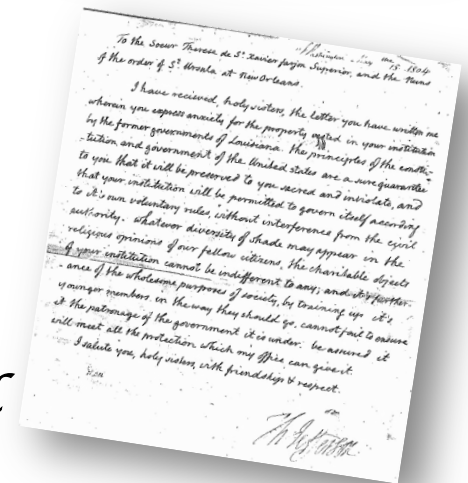 Washington May 15 1804
To the Soeur Therese de St. Xavier farjon Superior, and the Nuns
of the order of St. Ursula at New Orleans.
I have recieved, holy sisters, the letter you have written me
wherein you express anxiety for the property vested in your institution
by the former governments of Louisiana. the principles of the consti-
-tution and government of the United states are a sure guarantee
to you that it will be preserved to you sacred and inviolate, and
that your institution will be permitted to govern itself according
to it's own voluntary rules, without interference from the civil
authority. whatever diversity of shade may appear in the
religious opinions of our fellow citizens, the charitable objects
of your institution cannot be indifferent to any; and it's further-
-ance of the wholesome purposes of society, by training up it's
younger members in the way they should go, cannot fail to ensure
it the patronage of the government it is under. be assured it
will meet all the protection which my office can give it.
I salute you, holy sisters, with friendship & respect.
Th Jefferson